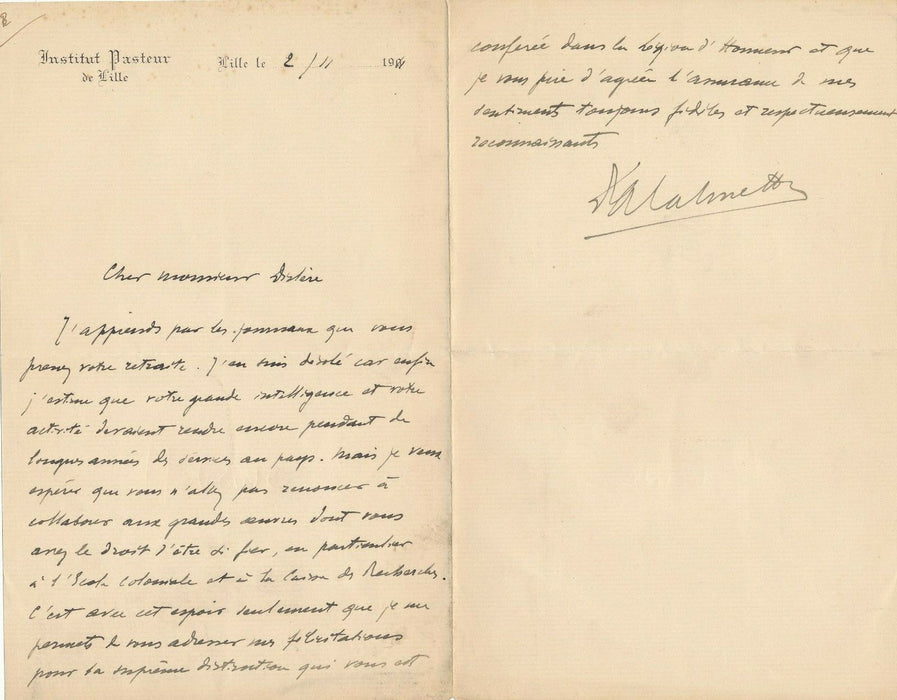 Institut Pasteur
de Lille
Lille le 2/11 190
Cher monsieur Dislère
J'apprends par les journaux que vous
prenez votre retraite. J'en suis désolé car enfin
j'estime que votre grande intelligence et votre
activité devraient rendre encore pendant de
longues années des services au pays. Mais je veux
espérer que vous n'allez pas renoncer à
collaborer aux grandes œuvres dont vous
avez le droit d'être si fier, en particulier
à l'Ecole Coloniale et à la Caisse des Recherches.
C'est avec cet espoir seulement que je me
permets de vous adresser mes félicitations
pour la suprême distinction qui vous est
conférée dans la Légion d'Honneur et que
je vous prie d'agréer l'assurance de mes
sentiments toujours fidèles et respectueusement
reconnaissants
Dr A Calmette